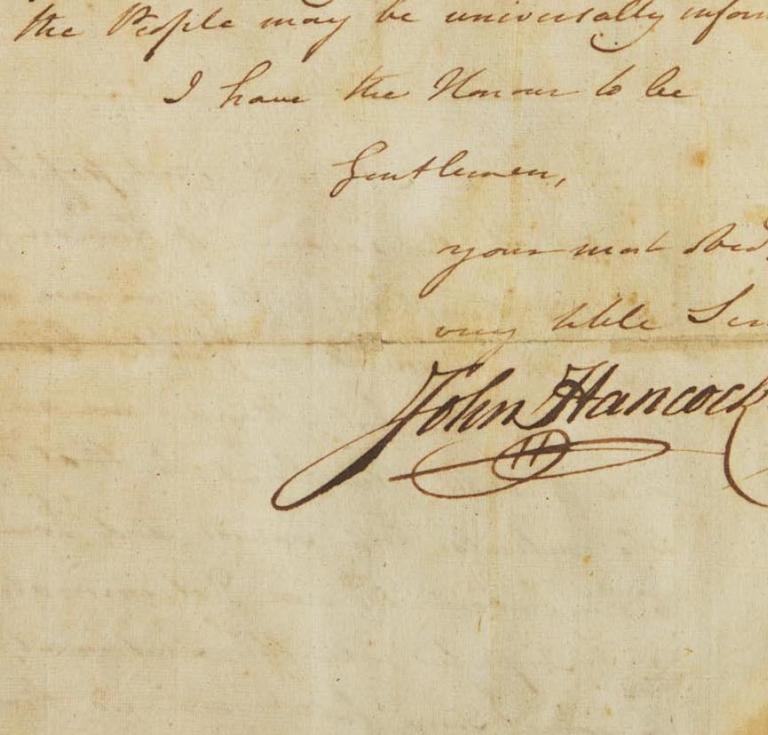 the People may be universally infor
I have the Honour to be
Gentlemen,
your most Obed
very hble Ser
John Hancock